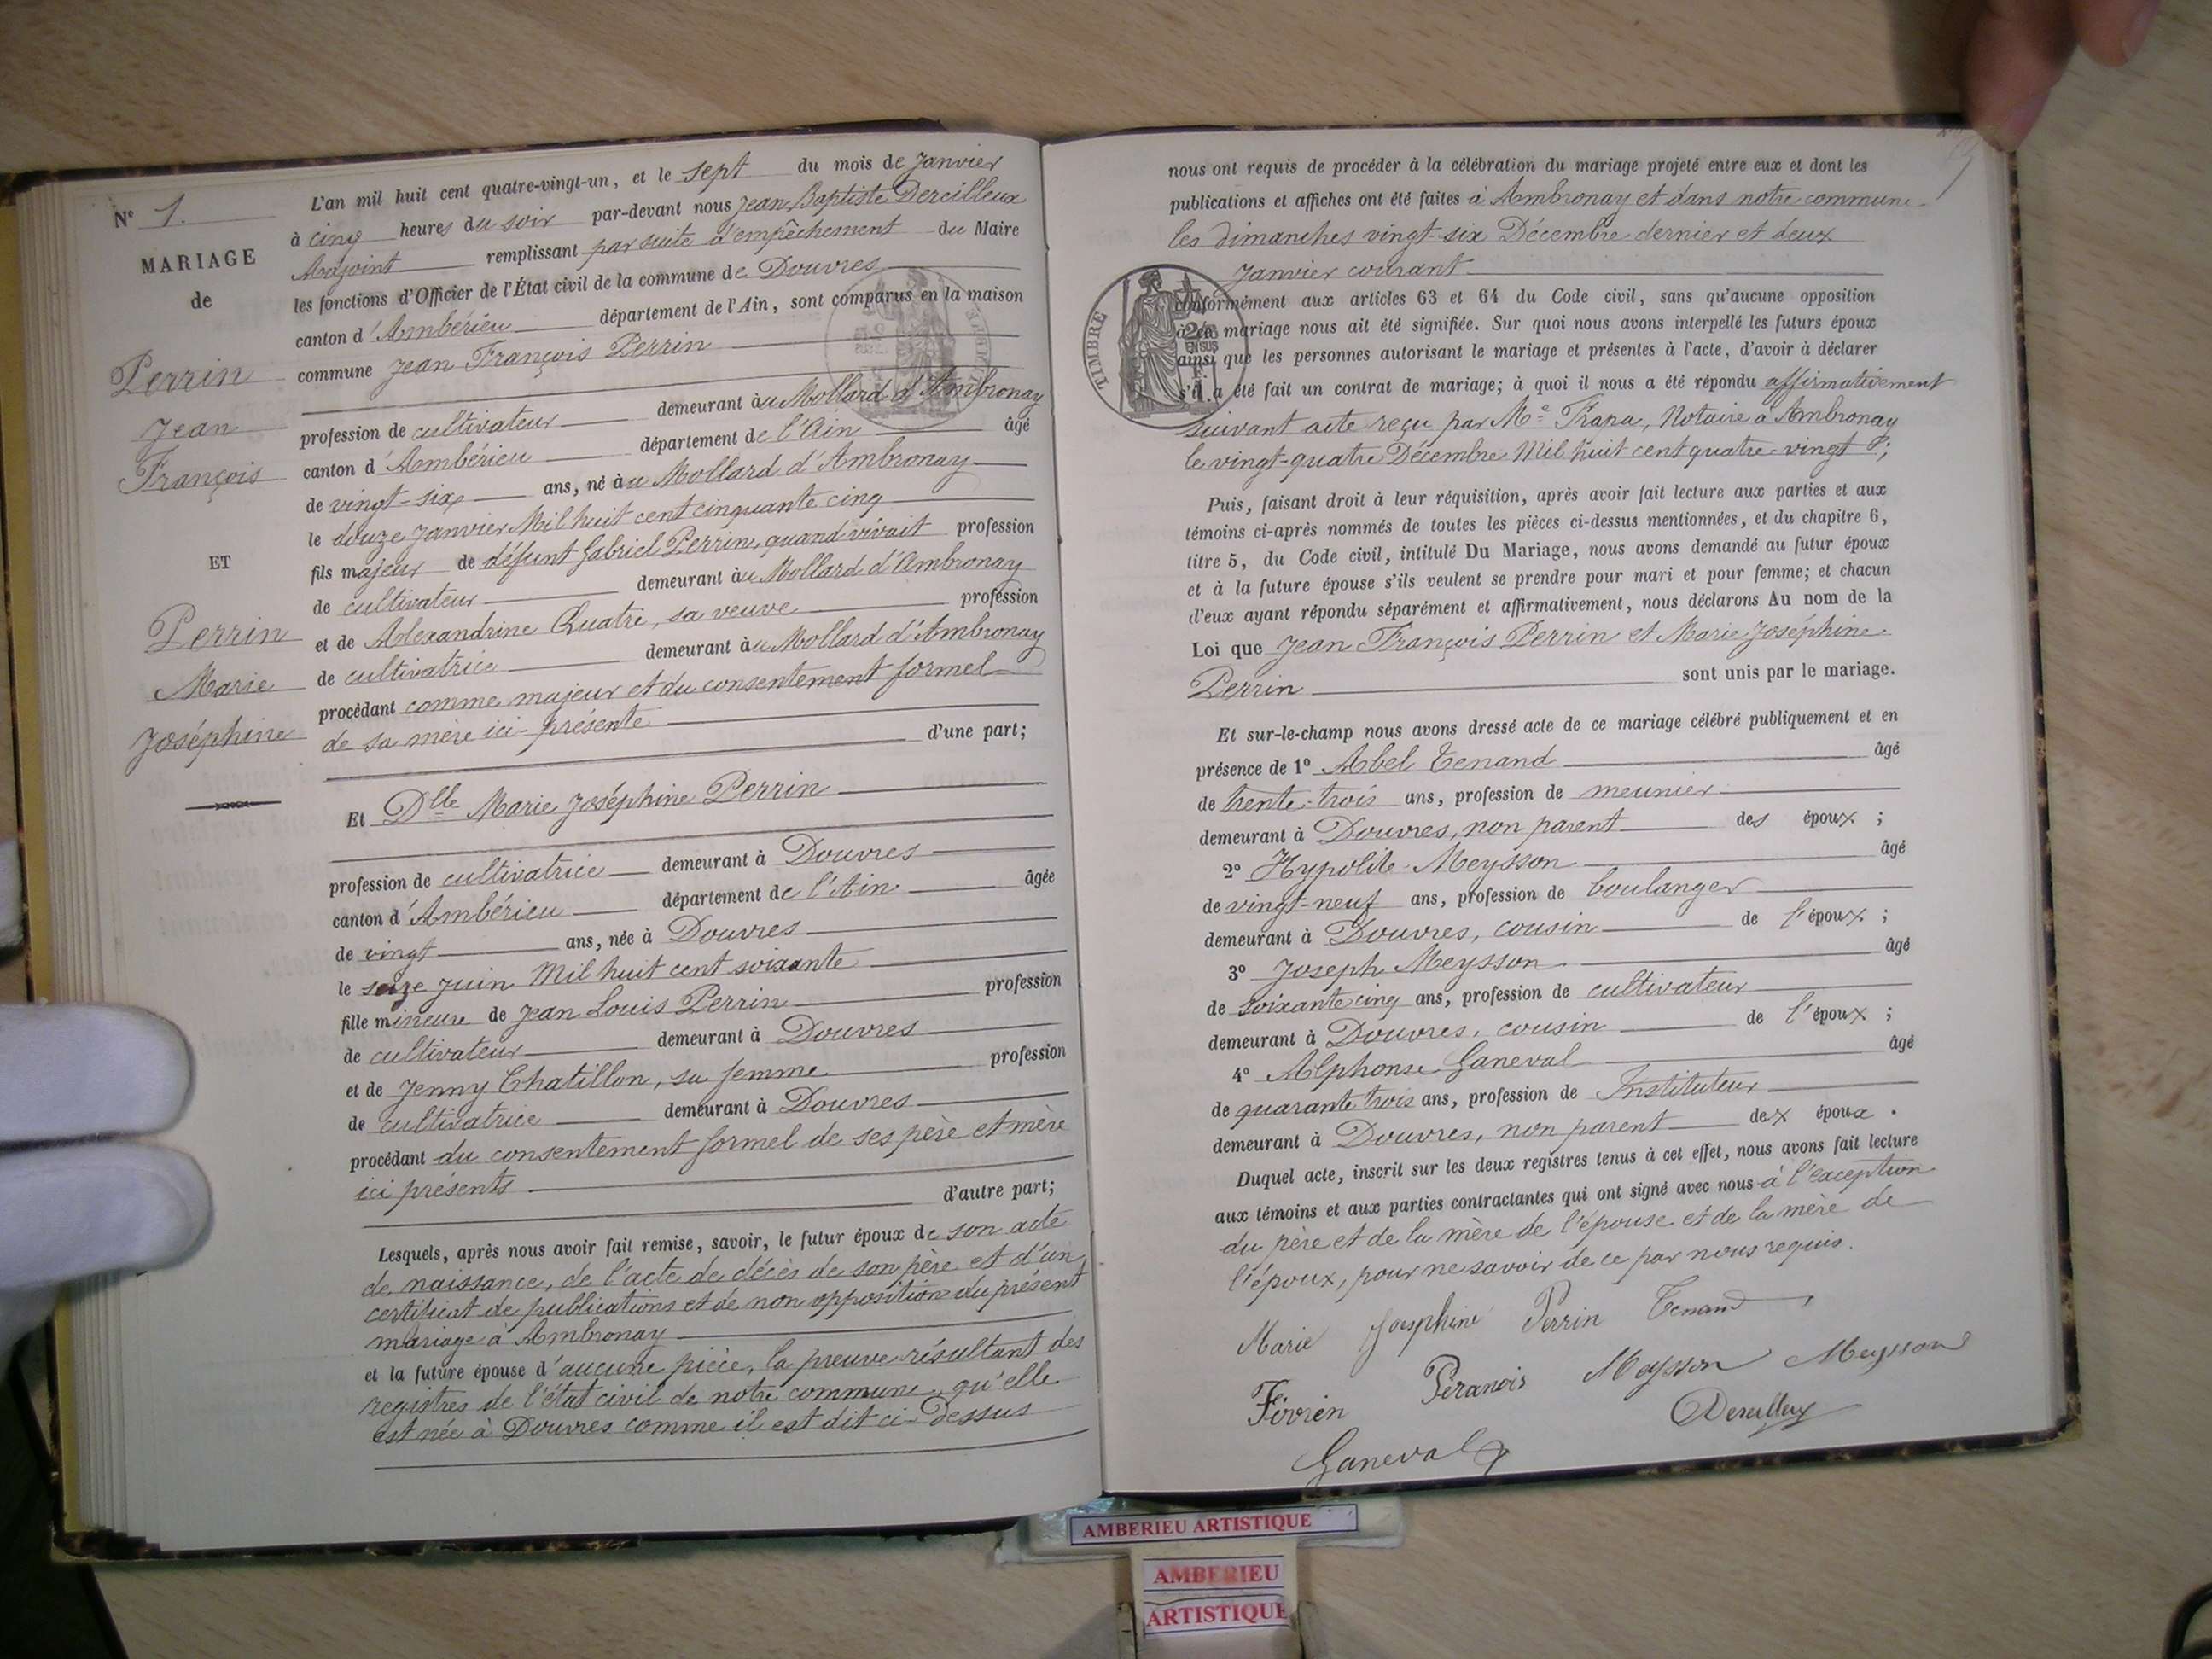 Nº 1.
MARIAGE
de
Perrin
Jean
François
ET
Perrin
Marie
Joséphine
L'an mil huit cent quatre-vingt-un, et le sept du mois de Janvier
à cinq heures du soir par-devant nous Jean Baptiste Dereilleux
Adjoint remplissant par suite d'empêchement du Maire
les fonctions d'Officier de l'État civil de la commune de Douvres
canton d'Ambérieu département de l'Ain, sont comparus en la maison
commune Jean François Perrin
profession de cultivateur demeurant au Mollard d'Ambronay
canton d'Ambérieu département de l'Ain âgé
de vingt-six ans, né au Mollard d'Ambronay
le douze Janvier Mil huit cent cinquante cinq
fils majeur de défunt Gabriel Perrin, quand vivait profession
de cultivateur demeurant au Mollard d'Ambronay
et de Alexandrine Quatre, sa veuve profession
de cultivatrice demeurant au Mollard d'Ambronay
procédant comme majeur et du consentement formel
de sa mère ici-présente
d'une part;
Et Dlle Marie Joséphine Perrin
profession de cultivatrice demeurant à Douvres
canton d'Ambérieu département de l'Ain âgée
de vingt ans, née à Douvres
le seize Juin Mil huit cent soixante
fille mineure de Jean Louis Perrin profession
de cultivateur demeurant à Douvres
et de Jenny Chatillon, sa femme profession
de cultivatrice demeurant à Douvres
procédant du consentement formel de ses père et mère
ici présents
d'autre part;
Lesquels, après nous avoir fait remise, savoir, le futur époux de son acte
de naissance, de l'acte de décès de son père et d'un
certificat de publications et de non opposition du présent
mariage à Ambronay
et la future épouse d'aucune pièce, la preuve résultant des
registres de l'état civil de notre commune, qu'elle
est née à Douvres comme il est dit ci-Dessus
nous ont requis de procéder à la célébration du mariage projeté entre eux et dont les
publications et affiches ont été faites à Ambronay et dans notre commune
les dimanches vingt-six Décembre dernier et deux
Janvier courant
TIMBRE
conformément aux articles 63 et 64 du Code civil, sans qu'aucune opposition
à ce mariage nous ait été signifiée. Sur quoi nous avons interpellé les futurs époux
EN SUS
ainsi que les personnes autorisant le mariage et présentes à l'acte, d'avoir à déclarer
s'il a été fait un contrat de mariage; à quoi il nous a été répondu affirmativement
suivant acte reçu par Me Notaire à Ambronay
le vingt-quatre Décembre Mil huit cent quatre-vingt;
Puis, faisant droit à leur réquisition, après avoir fait lecture aux parties et aux
témoins ci-après nommés de toutes les pièces ci-dessus mentionnées, et du chapitre 6,
titre 5, du Code civil, intitulé Du Mariage, nous avons demandé au futur époux
et à la future épouse s'ils veulent se prendre pour mari et pour femme; et chacun
d'eux ayant répondu séparément et affirmativement, nous déclarons Au nom de la
Loi que Jean François Perrin et Marie Joséphine
Perrin sont unis par le mariage.
Et sur-le-champ nous avons dressé acte de ce mariage célébré publiquement et en
présence de 1º Abel Tenand âgé
de trente-trois ans, profession de meunier
demeurant à Douvres, non parent des époux;
2º Hypolite Meysson âgé
de vingt-neuf ans, profession de boulanger
demeurant à Douvres, cousin de l'époux;
3º Joseph Meysson âgé
de soixante cinq ans, profession de cultivateur
demeurant à Douvres, cousin de l'époux;
4º Alphonse Ganeval âgé
de quarante trois ans, profession de Instituteur
demeurant à Douvres, non parent des époux.
Duquel acte, inscrit sur les deux registres tenus à cet effet, nous avons fait lecture
aux témoins et aux parties contractantes qui ont signé avec nous à l'exception
du père et de la mère de l'épouse et de la mère de
l'époux, pour ne savoir de ce par nous requis.
Marie Joesphine Perrin Tenand
Meysson Meysson
Ganeval
AMBERIEU ARTISTIQUE
AMBERIEU
ARTISTIQUE